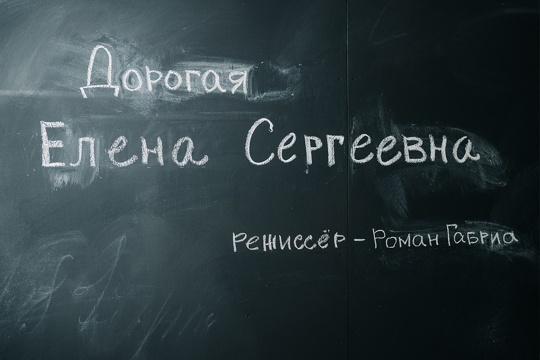 Дорогая
Елена Сергеевна
режиссёр - Роман Габриа